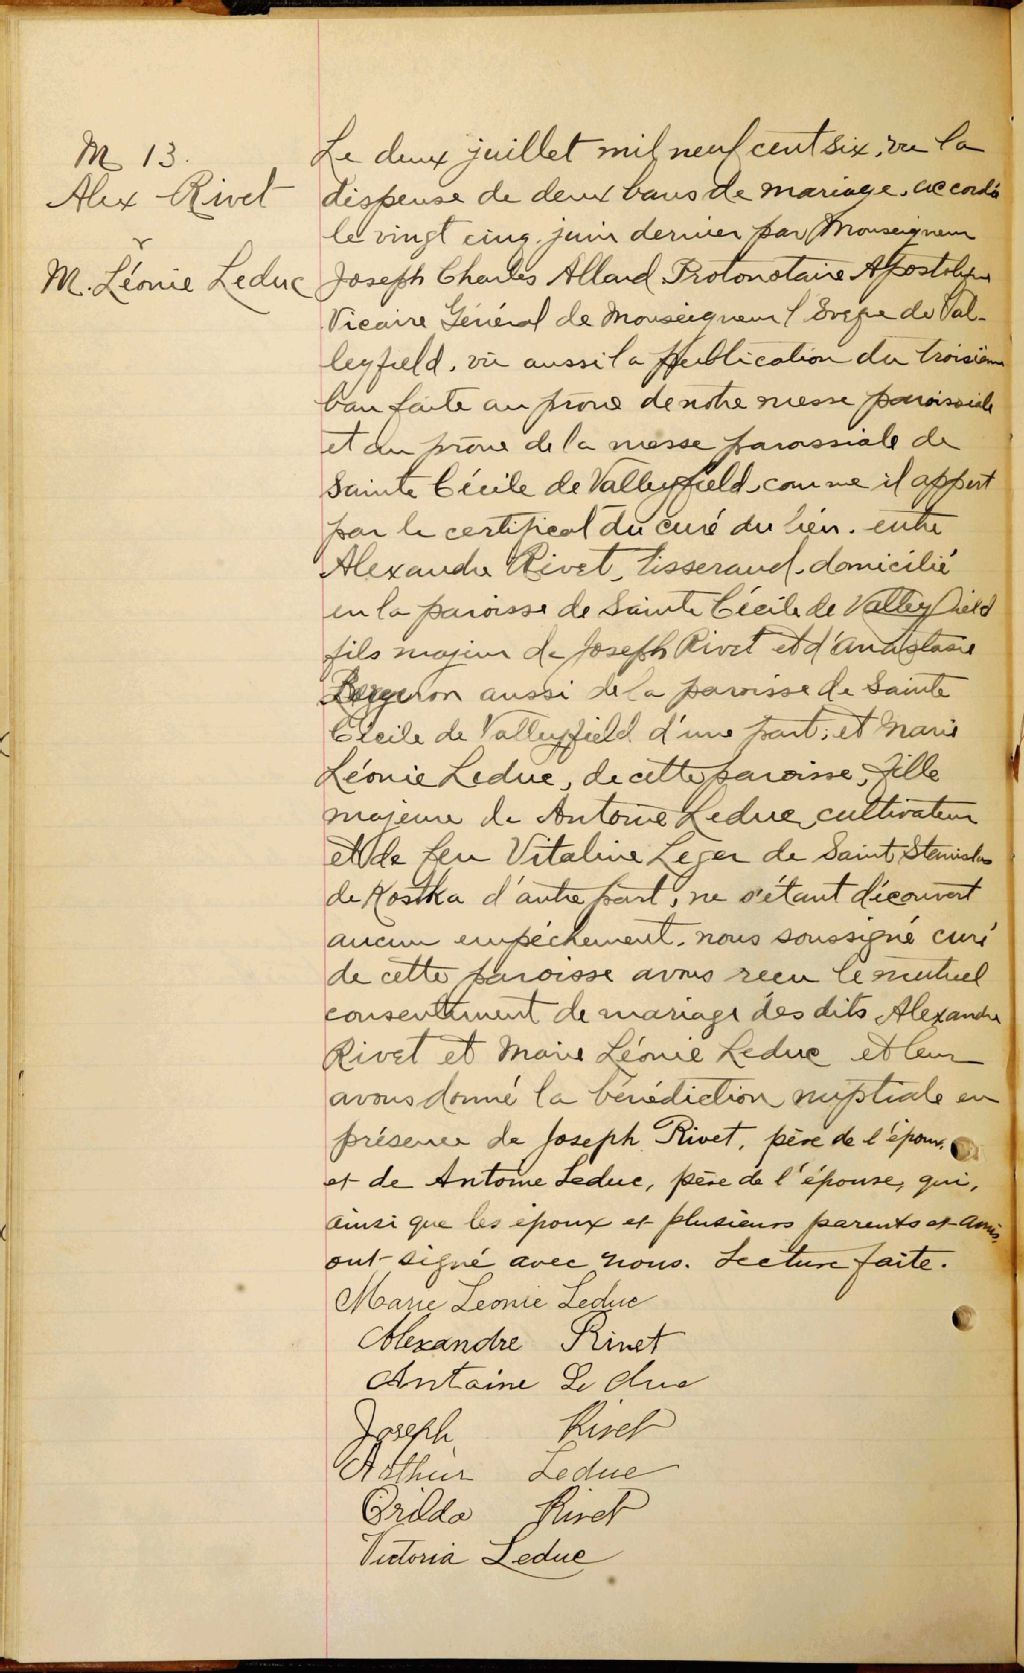 M 13.
Alex Rivet
&
M. Léonie Leduc
Le deux juillet mil neuf cent six, vu la
dispense de deux bans de mariage, accordé
le vingt cinq juin dernier par Monseigneur
Joseph Charles Allard Protonotaire Apostolique
Vicaire Général de Monseigneur l'Evêque de Val-
leyfield, vu aussi la publication du troisième
ban faite au prone de notre messe paroissiale
et au prône de la messe paroissiale de
Sainte Cécile de Valleyfield, comme il appert
par le certificat du curé du lieu. entre
Alexandre Rivet, tisserand, domicilié
en la paroisse de Sainte Cécile de Valleyfield
fils majeur de Joseph Rivet et d'Anastasie
Bergeron aussi de la paroisse de Sainte
Cécile de Valleyfield d'une part; et Marie
Léonie Leduc, de cette paroisse, fille
majeure de Antoine Leduc, cultivateur
et de feu Vitaline Leger de Saint Stanislas
de Kostka d'autre part, ne s'étant découvert
aucun empêchement, nous soussigné curé
de cette paroisse avons reçu le mutuel
consentement de mariage des dits Alexandre
Rivet et Marie Léonie Leduc et leur
avons donné la bénédiction nuptiale en
présence de Joseph Rivet, père de l'époux,
et de Antoine Leduc, père de l'épouse, qui,
ainsi que les époux et plusieurs parents et amis,
ont signé avec nous. Lecture faite.
Marie Leonie Leduc
Alexandre Rivet
Antoine Leduc
Joseph Rivet
Arthur Leduc
Orilda Rivet
Victoria Leduc